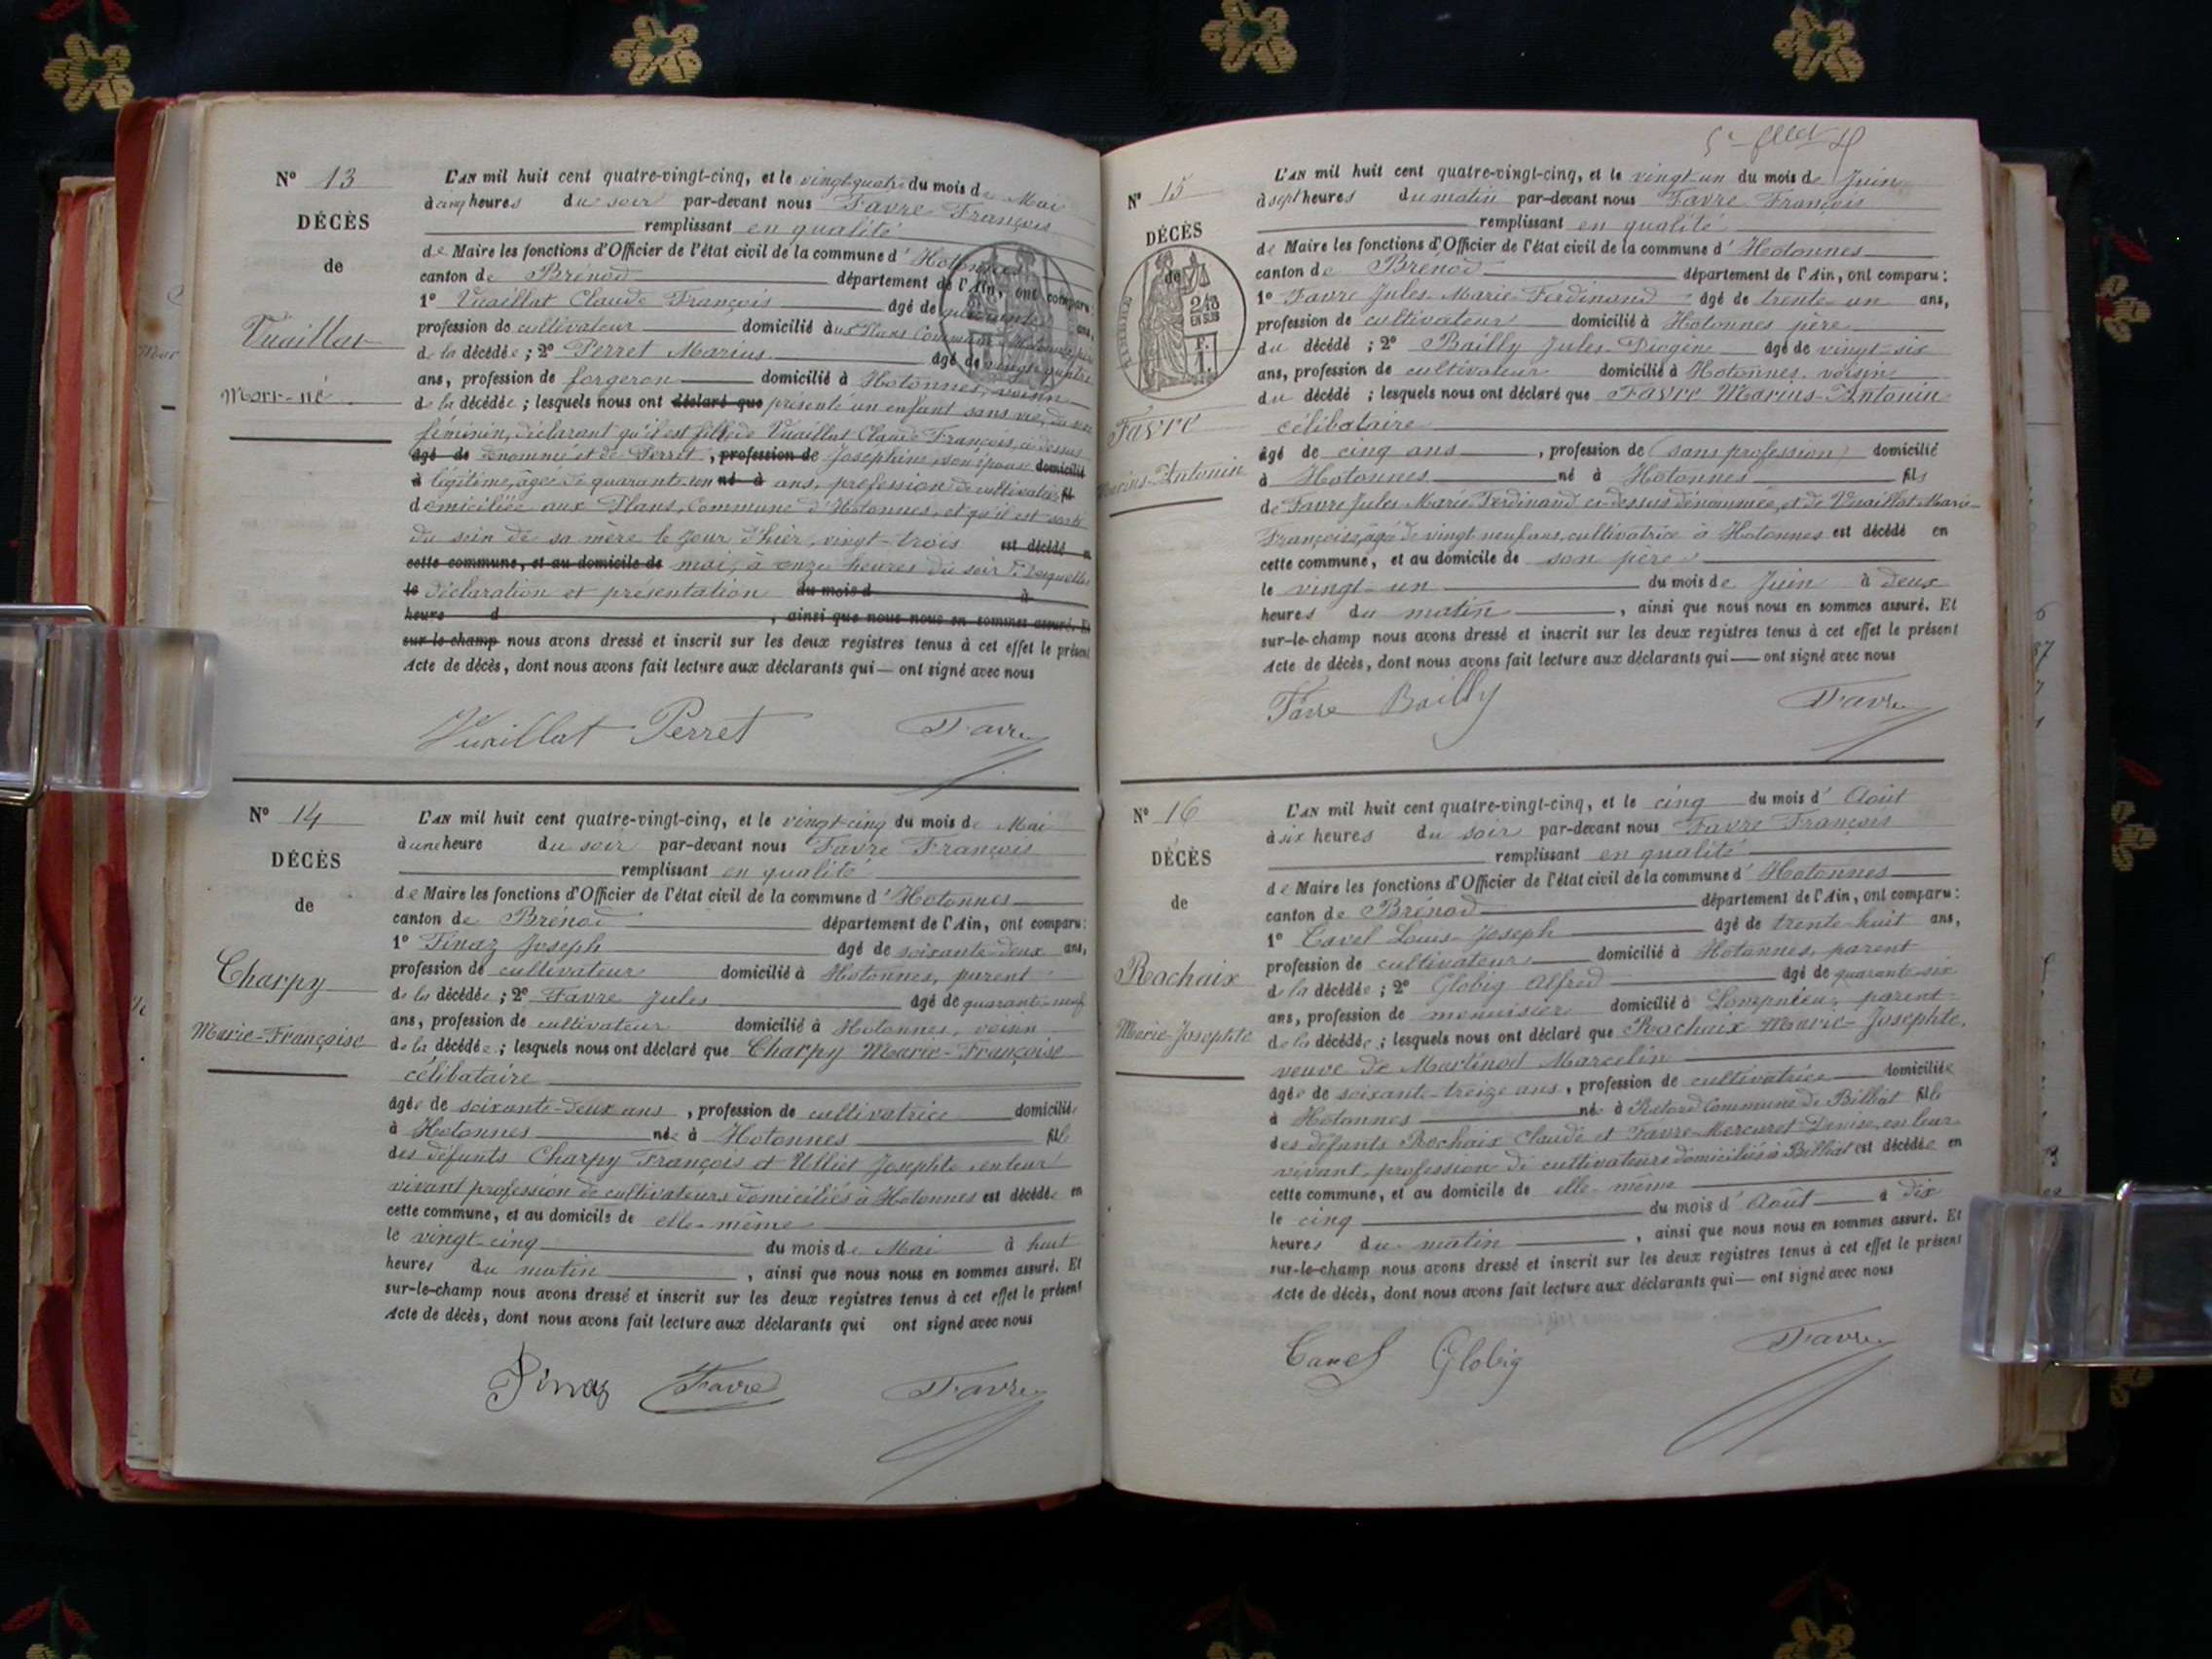 N° 13
DÉCÈS
de
Vuaillat
Mort-né
L'AN mil huit cent quatre-vingt-cinq, et le vingt-quatre du mois de Mai
à cinq heures du soir par-devant nous Favre François
remplissant en qualité
de Maire les fonctions d'Officier de l'état civil de la commune d'Hotonnes
canton de Brénod département de l'Ain, ont comparu:
1° Vuaillat Claude François âgé de quarante ans,
profession de cultivateur domicilié aux Plans Commune
de la décédée; 2° Perret Marius âgé de vingt-quatre
ans, profession de forgeron domicilié à Hotonnes, voisin
de la décédée; lesquels nous ont déclaré que présenté un enfant sans vie, du sexe
féminin, déclarant qu'il est fille de Vuaillat Claude François, ci-dessus
âgé de dénommé et de Perret, profession de Joséphine, son épouse domicilié
à légitime, âgée de quarante-un né à ans, profession de cultivatrice fil
domiciliée aux Plans, Commune d'Hotonnes, et qu'il est sorti
du sein de sa mère le jour d'hier, vingt-trois est décédé en
cette commune, et au domicile de mai, à onze heures du soir
le déclaration et présentation du mois d à
heure d , ainsi que nous nous en sommes assuré. Et
sur-le-champ nous avons dressé et inscrit sur les deux registres tenus à cet effet le présent
Acte de décès, dont nous avons fait lecture aux déclarants qui — ont signé avec nous
Vuaillat Perret Favre
N° 14
DÉCÈS
de
Charpy
Marie-Françoise
L'AN mil huit cent quatre-vingt-cinq, et le vingt-cinq du mois de Mai
à une heure du soir par-devant nous Favre François
remplissant en qualité
de Maire les fonctions d'Officier de l'état civil de la commune d'Hotonnes
canton de Brénod département de l'Ain, ont comparu:
1° Pinaz Joseph âgé de soixante-deux ans,
profession de cultivateur domicilié à Hotonnes, parent
de la décédée; 2° Favre Jules âgé de quarante-neuf
ans, profession de cultivateur domicilié à Hotonnes, voisin
de la décédée; lesquels nous ont déclaré que Charpy Marie-Françoise
célibataire
âgée de soixante-deux ans, profession de cultivatrice domiciliée
à Hotonnes née à Hotonnes fille
des défunts Charpy François et Ulliet Josephte, en leur
vivant profession de cultivateurs domiciliés à Hotonnes est décédée en
cette commune, et au domicile de elle-même
le vingt-cinq du mois de Mai à huit
heures du matin, ainsi que nous nous en sommes assuré. Et
sur-le-champ nous avons dressé et inscrit sur les deux registres tenus à cet effet le présent
Acte de décès, dont nous avons fait lecture aux déclarants qui ont signé avec nous
Pinaz Favre Favre
N° 15
DÉCÈS
de
Favre
Marius-Antonin
L'AN mil huit cent quatre-vingt-cinq, et le vingt-un du mois de Juin
à sept heures du matin par-devant nous Favre François
remplissant en qualité
de Maire les fonctions d'Officier de l'état civil de la commune d'Hotonnes
canton de Brénod département de l'Ain, ont comparu:
1° Favre Jules-Marie-Ferdinand âgé de trente-un ans,
profession de cultivateur domicilié à Hotonnes père
du décédé; 2° Bailly Jules-Diogène âgé de vingt-six
ans, profession de cultivateur domicilié à Hotonnes, voisin
du décédé; lesquels nous ont déclaré que Favre Marius-Antonin
célibataire
âgé de cinq ans, profession de (sans profession) domicilié
à Hotonnes né à Hotonnes fils
de Favre Jules Marie Ferdinand ci-dessus dénommé, et de Vuaillat Marie-
Françoise, âgée de vingt neuf ans, cultivatrice à Hotonnes est décédé en
cette commune, et au domicile de son père
le vingt-un du mois de Juin à deux
heures du matin, ainsi que nous nous en sommes assuré. Et
sur-le-champ nous avons dressé et inscrit sur les deux registres tenus à cet effet le présent
Acte de décès, dont nous avons fait lecture aux déclarants qui — ont signé avec nous
Favre Bailly Favre
N° 16
DÉCÈS
de
Rochaix
Marie-Josephte
L'AN mil huit cent quatre-vingt-cinq, et le cinq du mois d'Août
à six heures du soir par-devant nous Favre François
remplissant en qualité
de Maire les fonctions d'Officier de l'état civil de la commune d'Hotonnes
canton de Brénod département de l'Ain, ont comparu:
1° Carel Louis-Joseph âgé de trente-huit ans,
profession de cultivateur domicilié à Hotonnes, parent
de la décédée; 2° Globig Alfred âgé de quarante-six
ans, profession de menuisier domicilié à Lompnieu, parent
de la décédée; lesquels nous ont déclaré que Rochaix Marie-Josephte,
veuve de Martinod Marcelin
âgée de soixante-treize ans, profession de cultivatrice domiciliée
à Hotonnes née à Retord Commune de Billiat fille
des défunts Rochaix Claude et Favre-Mercuret Denise, en leur
vivant, profession de cultivateurs domiciliés à Billiat est décédée en
cette commune, et au domicile de elle même
le cinq du mois d'Août à dix
heures du matin, ainsi que nous nous en sommes assuré. Et
sur-le-champ nous avons dressé et inscrit sur les deux registres tenus à cet effet le présent
Acte de décès, dont nous avons fait lecture aux déclarants qui — ont signé avec nous
Carel Globig Favre